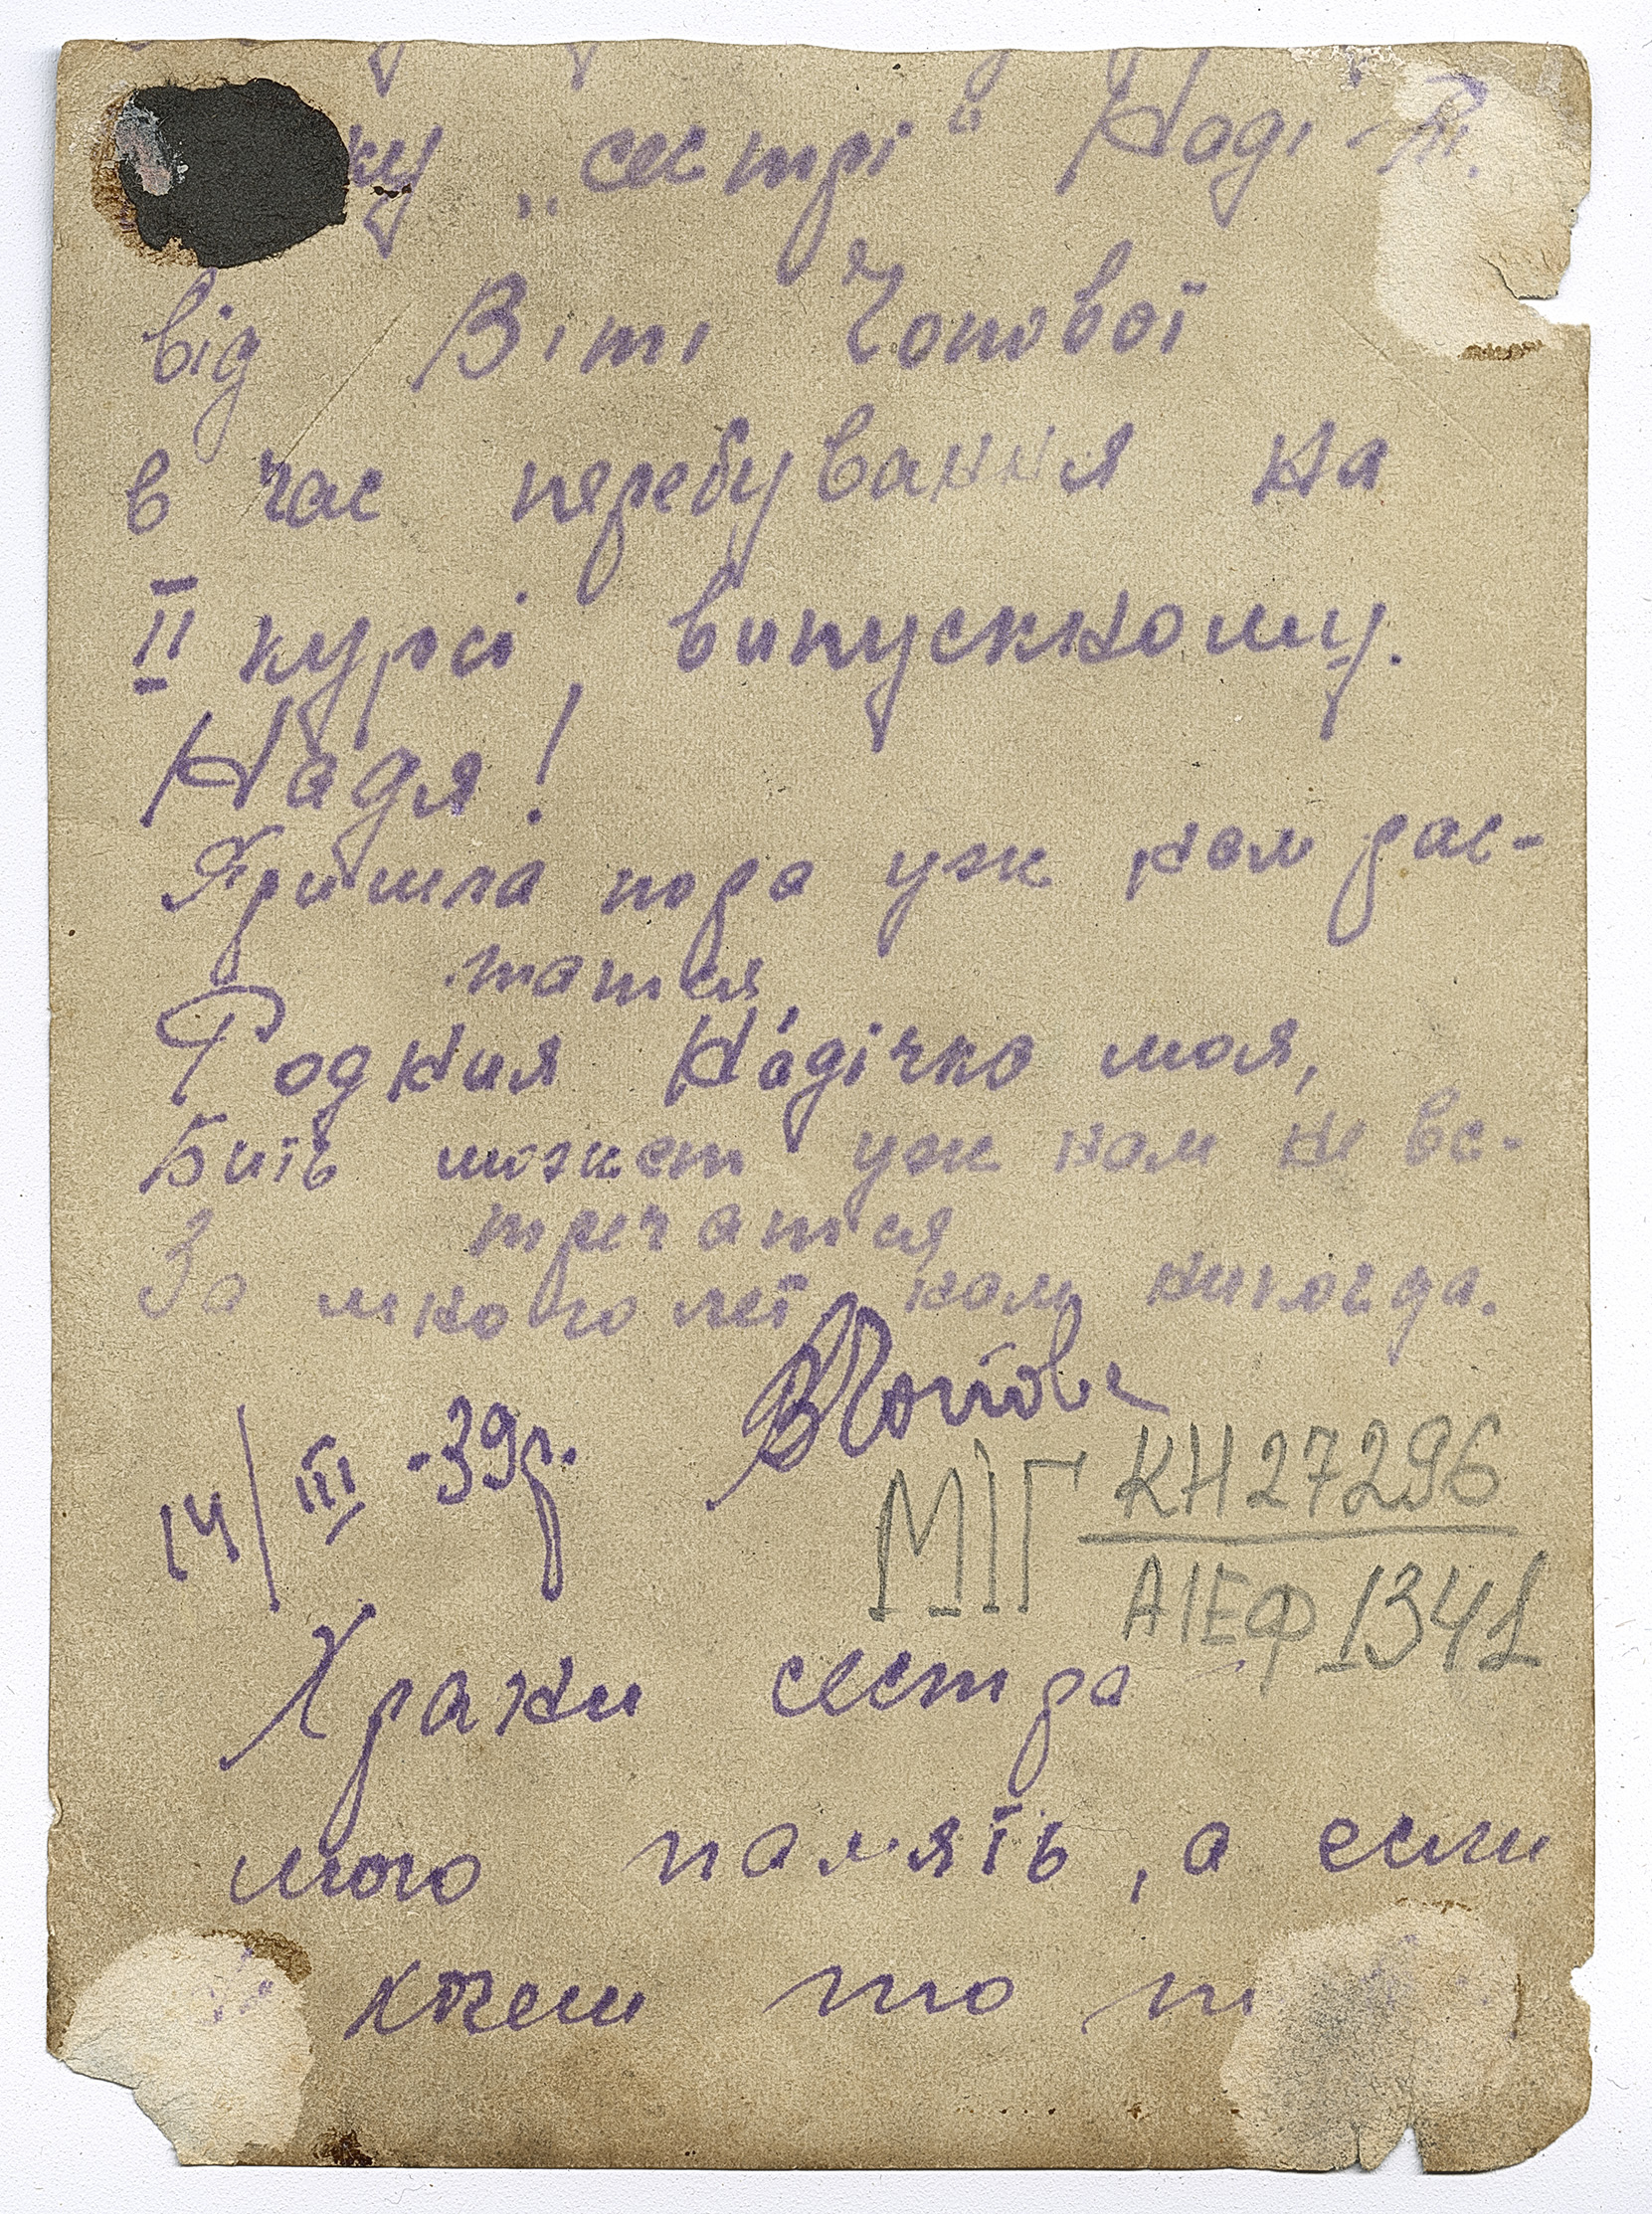 „сестрі“ Наді
від Віті Чопової
в час перебування на
II курсі випускному.
Надя!
Пришла пора уж нам рас-
татся,
Родния На́дічко моя,
Бить может уж нам не вс-
тречатся
За много лет нам никогда.
ВЧопова
14/III -39р.
МІГ КН27296
АІЕФ 1341
Храни сестра
мою память, а если
хочеш то п